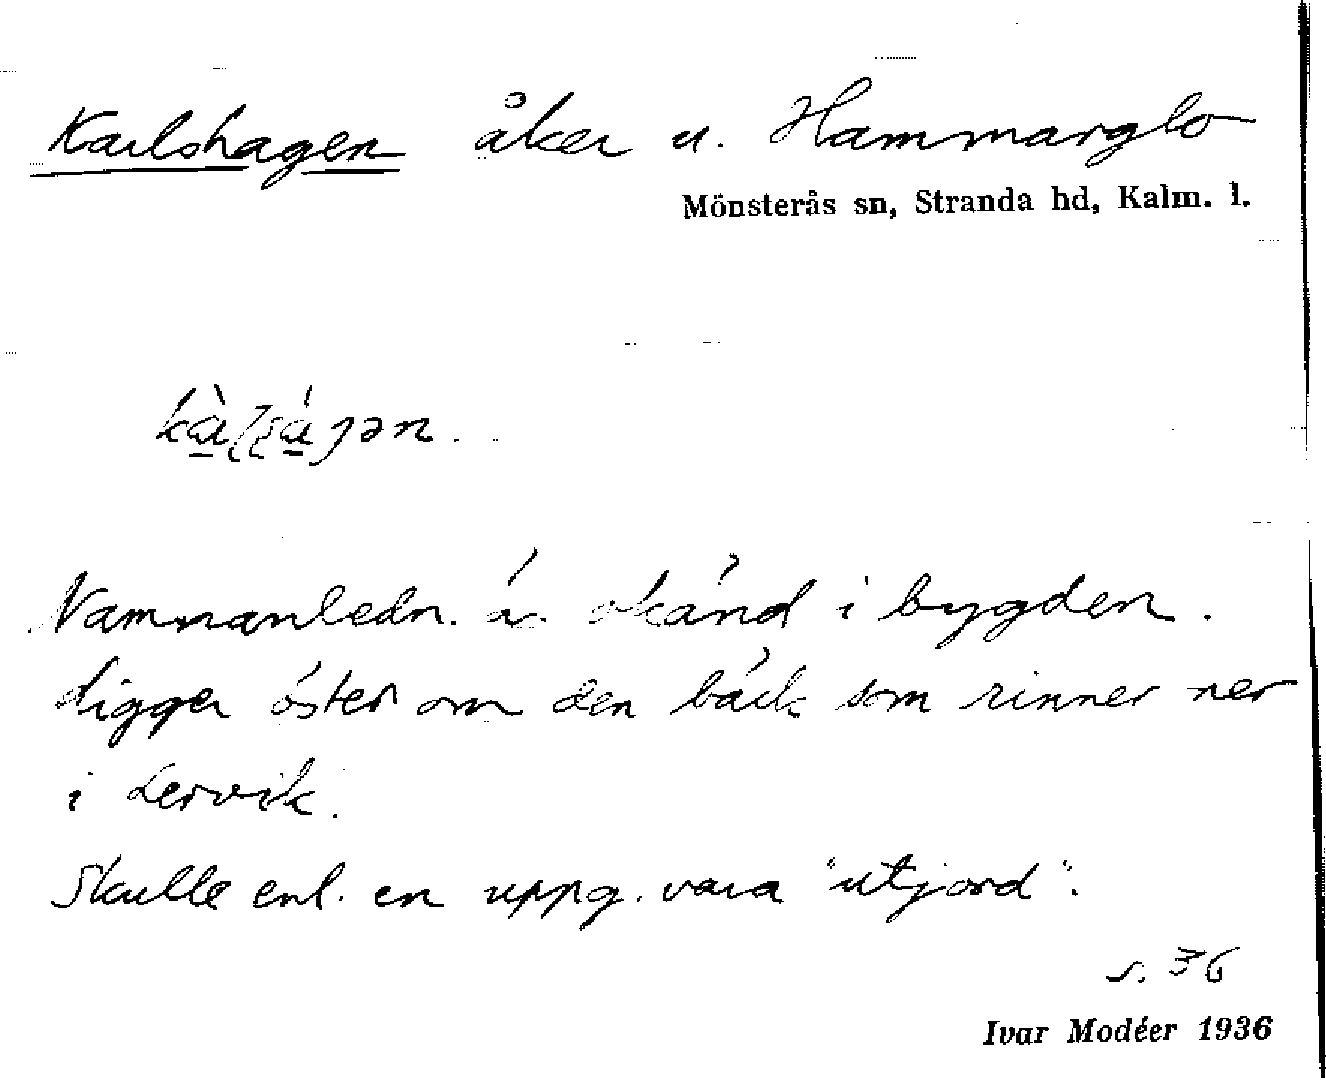 Karlshagen åker u. Hammarglo
Mönsterås sn, Stranda hd, Kalm. l.
Namnanledn. är okänd i bygden.
Ligger öster om den bäck som rinner ner
i Lervik.
Skulle enl. en uppg. vara "utjord".
s. 36
Ivar Modéer 1936